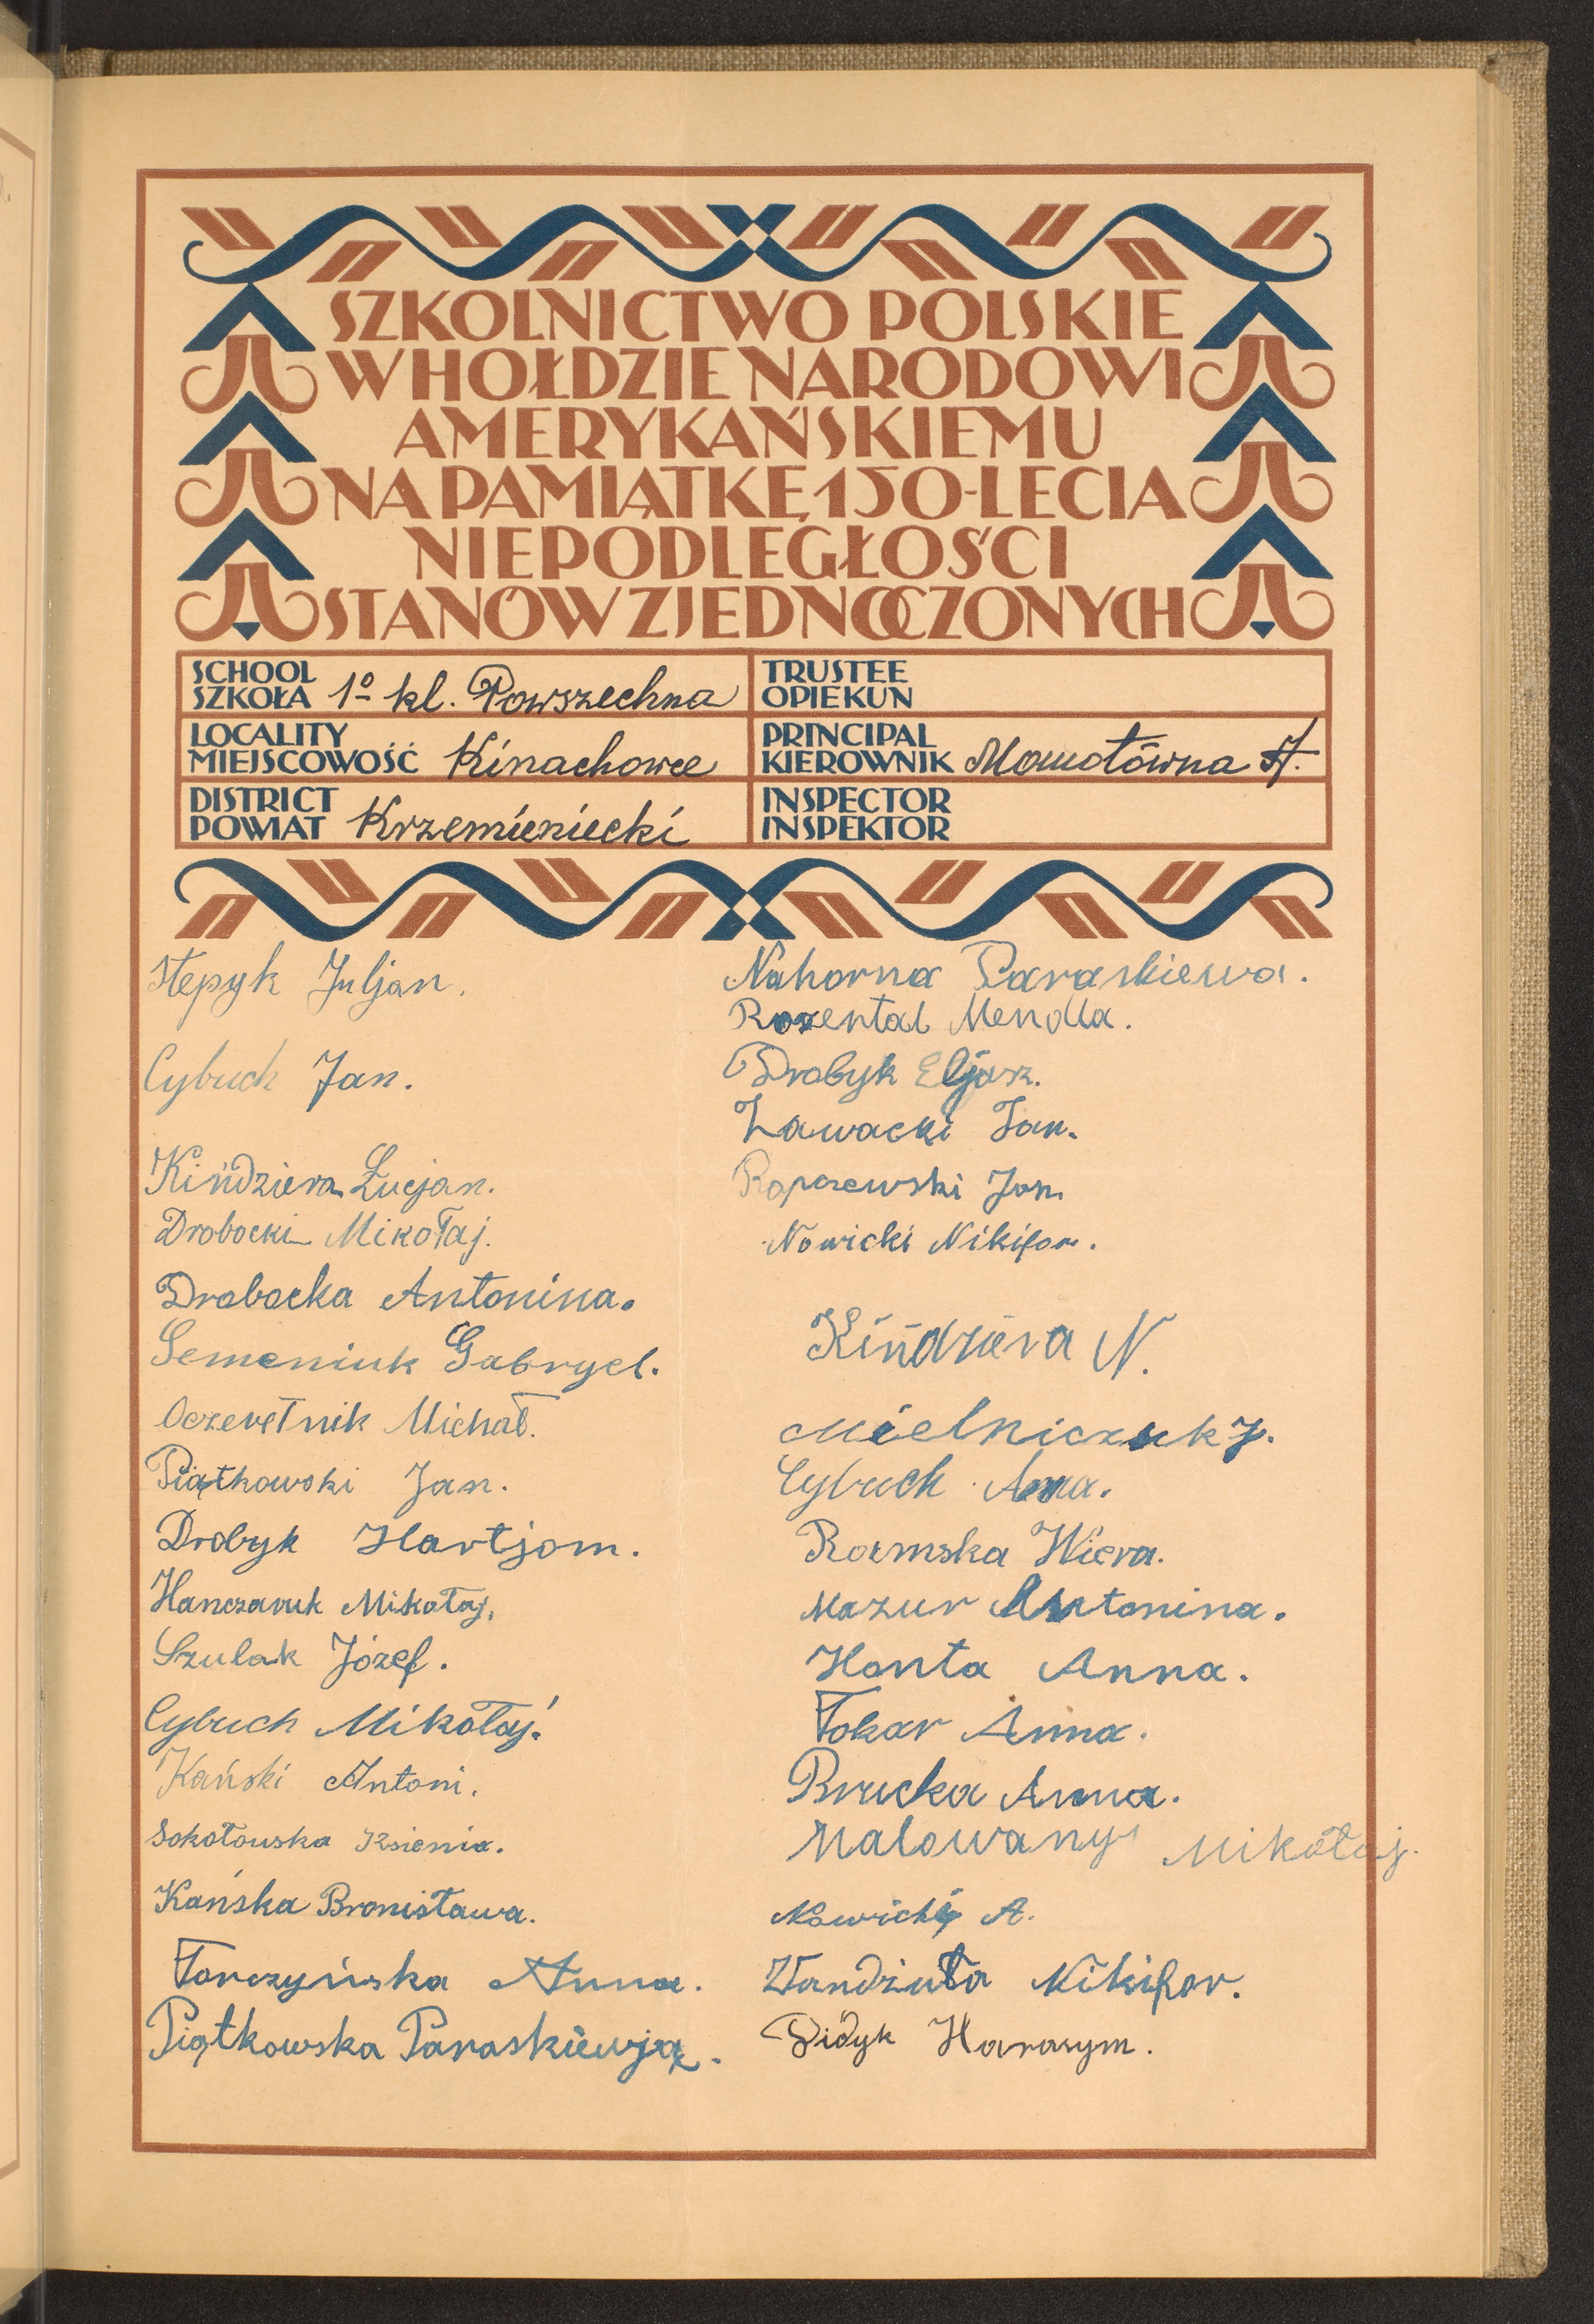 SZKOLNICTWO POLSKIE
W HOŁDZIE NARODOWI
AMERYKAŃSKIEMU
NA PAMIĄTKĘ 150-LECIA
NIEPODLEGŁOŚCI
STANÓW ZJEDNOCZONYCH
SCHOOL
SZKOŁA 1º kl. Powszechna
TRUSTEE
OPIEKUN
LOCALITY
MIEJSCOWOŚĆ Kinachowce
PRINCIPAL
KIEROWNIK Mamotówna A.
DISTRICT
POWIAT Krzemieniecki
INSPECTOR
INSPEKTOR
Stepyk Juljan.
Cybuch Jan.
Kińdziera Łucjan.
Drobocki Mikołaj.
Drobocka Antonina.
Semeniuk Gabryel.
Oczeretnik Michał.
Piątkowski Jan.
Drobyk Hartjom.
Hanczaruk Mikołaj.
Szulak Józef.
Cybuch Mikołaj.
Kański Antoni.
Sokołowska Ksienia.
Kańska Bronisława.
Torczyńska Anna.
Piątkowska Paraskiewja.
Nahorna Paraskiewa.
Rozental Mendla.
Drobyk Eljasz.
Zawacki Jan.
Ropczewski Jan.
Nowicki Nikifor.
Kińdziera N.
Mielniczuk J.
Cybuch Anna.
Ramska Wiera.
Mazur Antonina.
Honta Anna.
Tokar Anna.
Brucka Anna.
Malowany Mikołaj.
Nowicki A.
Nikifor.
Didyk Harasym.